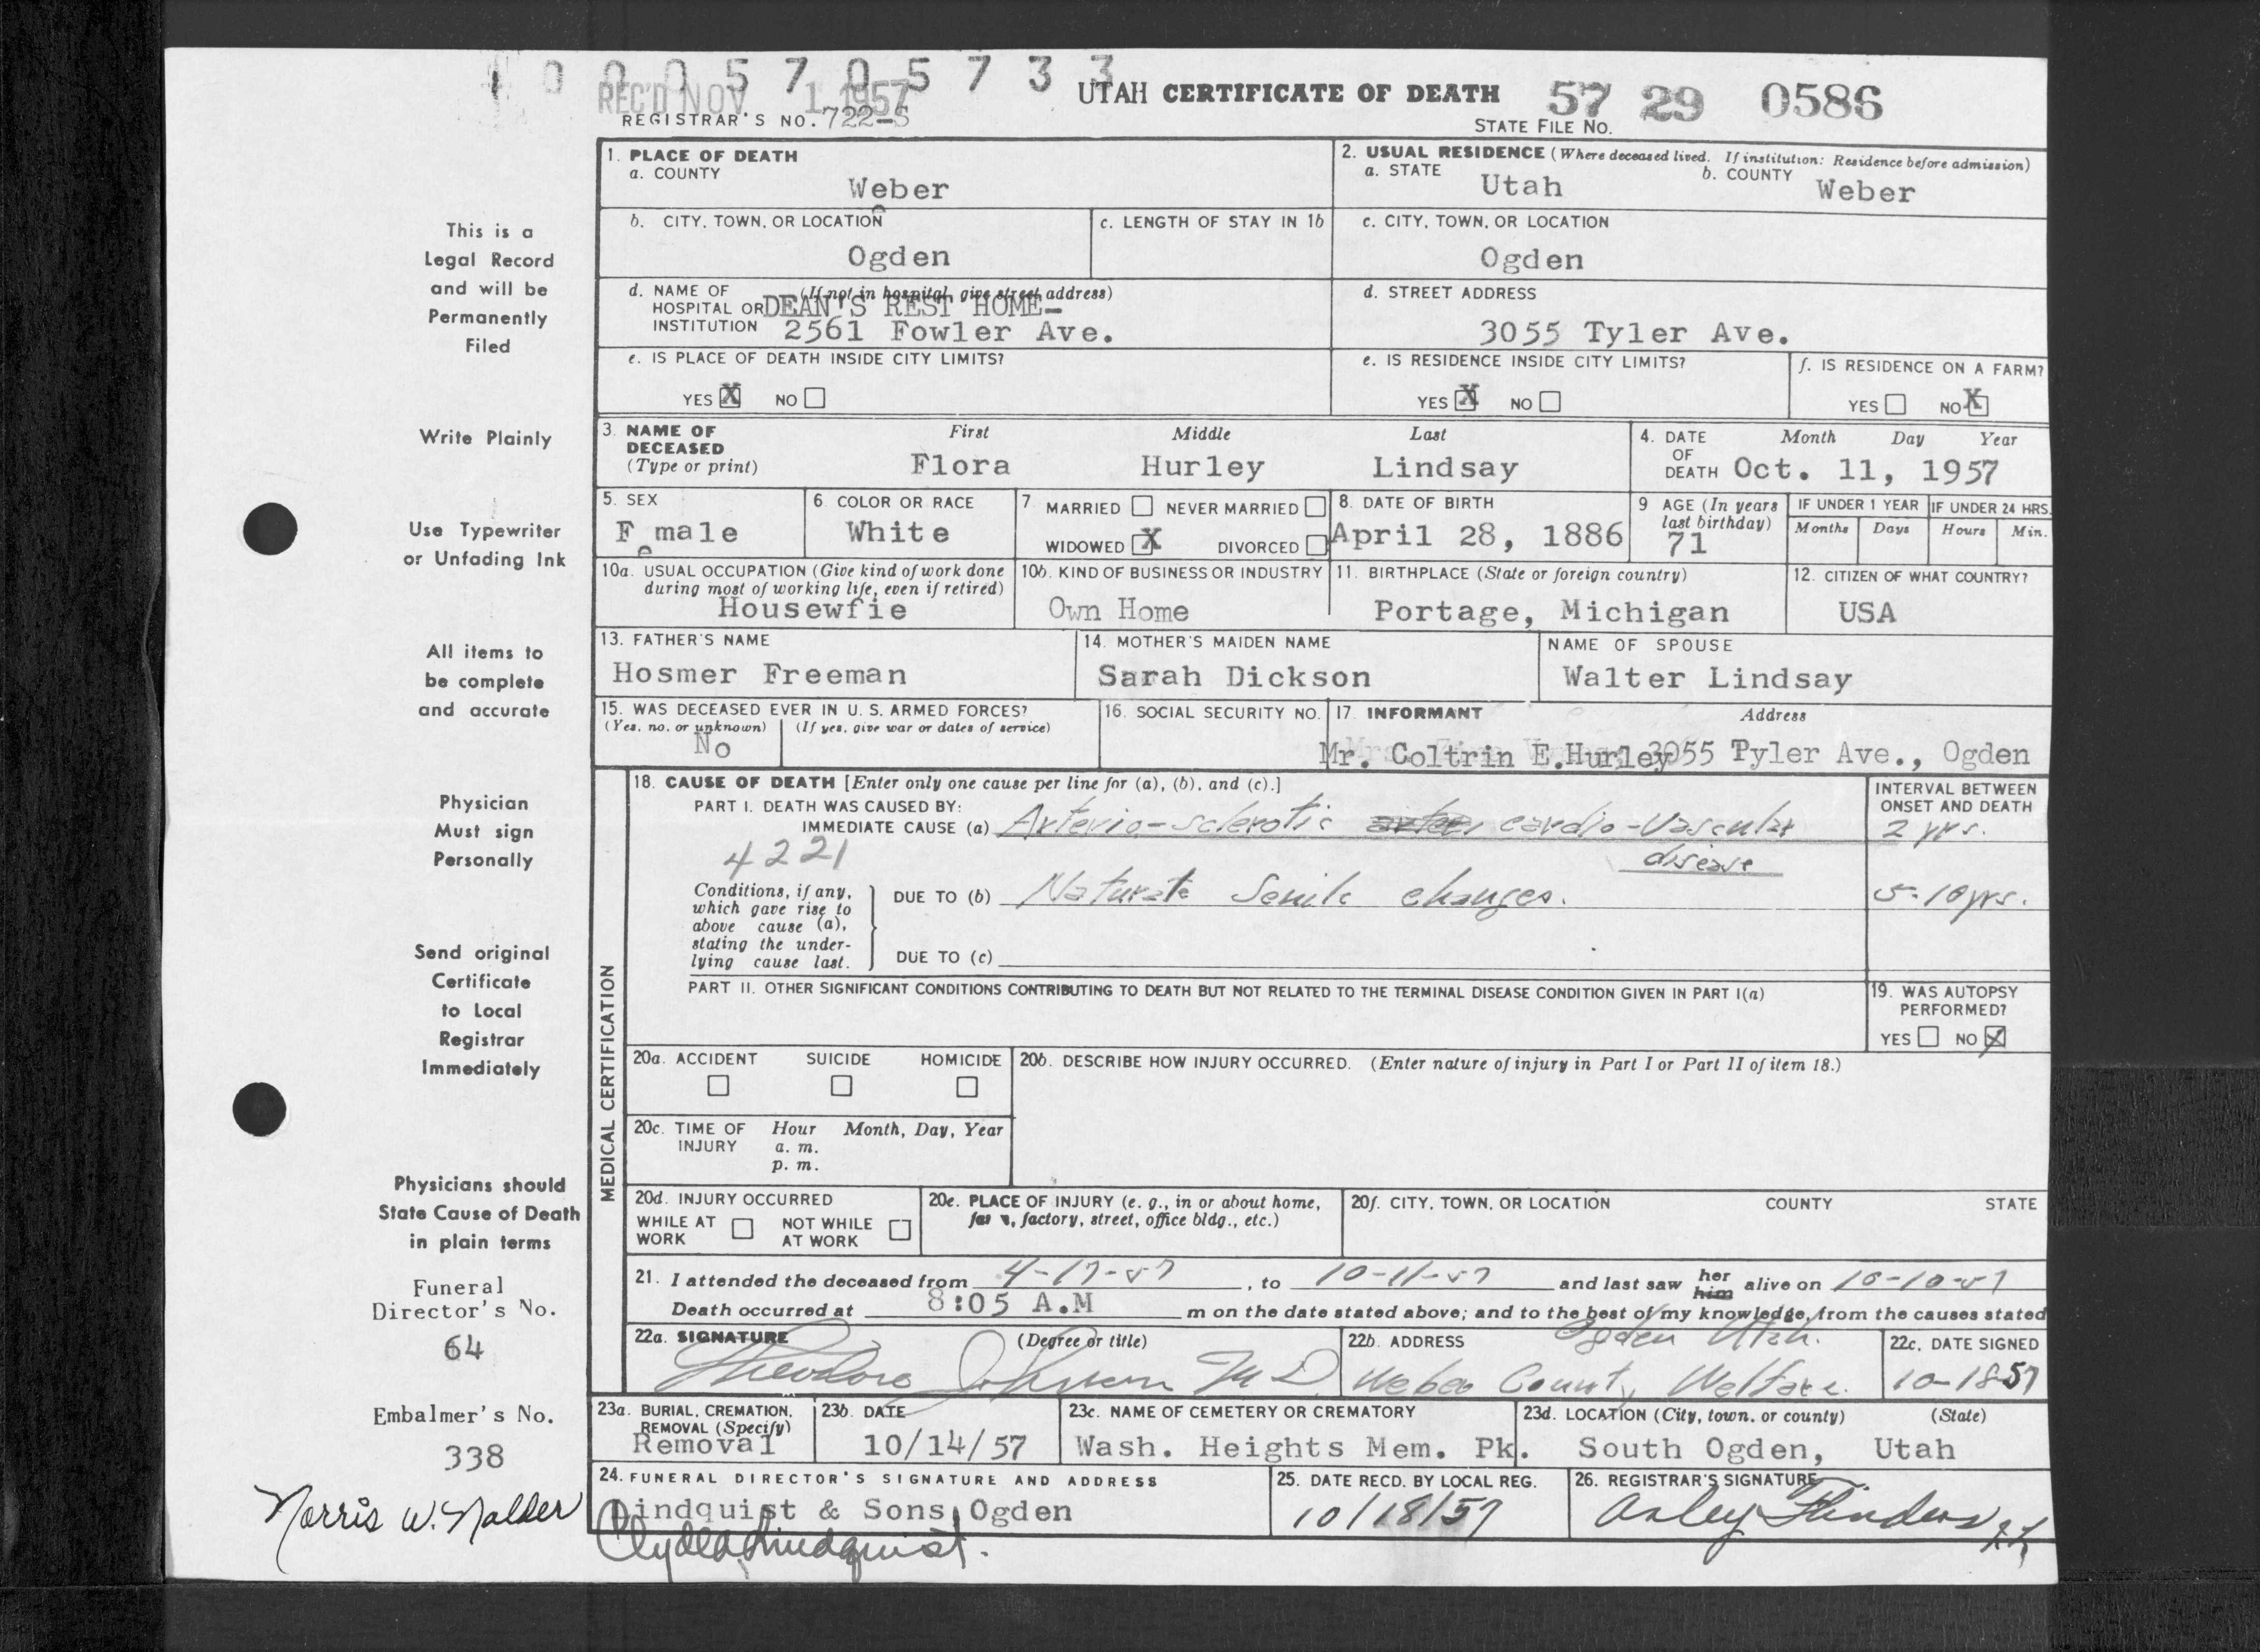 1 0 0 0 5 7 0 5 7 3 3
REC'D NOV 1 1957
REGISTRAR'S NO. 722-S
UTAH CERTIFICATE OF DEATH
57 29 0586
STATE FILE NO.
1. PLACE OF DEATH
a. COUNTY
Weber
2. USUAL RESIDENCE (Where deceased lived. If institution: Residence before admission)
a. STATE Utah b. COUNTY Weber
b. CITY, TOWN, OR LOCATION
Ogden
c. LENGTH OF STAY IN 1b
c. CITY, TOWN, OR LOCATION
Ogden
d. NAME OF (If not in hospital, give street address)
HOSPITAL OR DEAN'S REST HOME-
INSTITUTION 2561 Fowler Ave.
d. STREET ADDRESS
3055 Tyler Ave.
e. IS PLACE OF DEATH INSIDE CITY LIMITS?
YES X NO
e. IS RESIDENCE INSIDE CITY LIMITS?
YES X NO
f. IS RESIDENCE ON A FARM?
YES NO X
3. NAME OF DECEASED (Type or print)
First Middle Last
Flora Hurley Lindsay
4. DATE OF DEATH Month Day Year
Oct. 11, 1957
5. SEX
Female
6 COLOR OR RACE
White
7 MARRIED NEVER MARRIED
WIDOWED X DIVORCED
8. DATE OF BIRTH
April 28, 1886
9 AGE (In years last birthday)
71
IF UNDER 1 YEAR IF UNDER 24 HRS.
Months Days Hours Min.
10a. USUAL OCCUPATION (Give kind of work done
during most of working life, even if retired)
Housewfie
10b. KIND OF BUSINESS OR INDUSTRY
Own Home
11. BIRTHPLACE (State or foreign country)
Portage, Michigan
12. CITIZEN OF WHAT COUNTRY?
USA
13. FATHER'S NAME
Hosmer Freeman
14. MOTHER'S MAIDEN NAME
Sarah Dickson
NAME OF SPOUSE
Walter Lindsay
15. WAS DECEASED EVER IN U. S. ARMED FORCES?
(Yes, no, or unknown) (If yes, give war or dates of service)
No
16. SOCIAL SECURITY NO.
17. INFORMANT Address
Mr. Coltrin E.Hurley 3055 Tyler Ave., Ogden
MEDICAL CERTIFICATION
18. CAUSE OF DEATH [Enter only one cause per line for (a), (b), and (c).]
INTERVAL BETWEEN
ONSET AND DEATH
PART I. DEATH WAS CAUSED BY:
IMMEDIATE CAUSE (a) Arterio-sclerotic cardio-vascular 2 yrs.
disease
4221
Conditions, if any,
which gave rise to
above cause (a),
stating the under-
lying cause last.
DUE TO (b) Senile changes. 5-10 yrs.
DUE TO (c)
PART II. OTHER SIGNIFICANT CONDITIONS CONTRIBUTING TO DEATH BUT NOT RELATED TO THE TERMINAL DISEASE CONDITION GIVEN IN PART I(a)
19. WAS AUTOPSY
PERFORMED?
YES NO X
20a. ACCIDENT SUICIDE HOMICIDE
20b. DESCRIBE HOW INJURY OCCURRED. (Enter nature of injury in Part I or Part II of item 18.)
20c. TIME OF INJURY Hour Month, Day, Year
a. m.
p. m.
20d. INJURY OCCURRED
WHILE AT WORK NOT WHILE AT WORK
20e. PLACE OF INJURY (e. g., in or about home,
farm, factory, street, office bldg., etc.)
20f. CITY, TOWN, OR LOCATION COUNTY STATE
21. I attended the deceased from 4-17-57, to 10-11-57 and last saw her him alive on 10-10-57
Death occurred at 8:05 A.M m on the date stated above; and to the best of my knowledge, from the causes stated
22a. SIGNATURE (Degree or title)
Theodore Johnson M D
22b. ADDRESS Ogden Utah.
Weber County Welfare
22c. DATE SIGNED
10-18-57
23a. BURIAL, CREMATION,
REMOVAL (Specify)
Removal
23b. DATE
10/14/57
23c. NAME OF CEMETERY OR CREMATORY
Wash. Heights Mem. Pk.
23d. LOCATION (City, town, or county) (State)
South Ogden, Utah
24. FUNERAL DIRECTOR'S SIGNATURE AND ADDRESS
Lindquist & Sons, Ogden
Clyde A. Lindquist.
25. DATE RECD. BY LOCAL REG.
10/18/57
26. REGISTRAR'S SIGNATURE
This is a
Legal Record
and will be
Permanently
Filed
Write Plainly
Use Typewriter
or Unfading Ink
All items to
be complete
and accurate
Physician
Must sign
Personally
Send original
Certificate
to Local
Registrar
Immediately
Physicians should
State Cause of Death
in plain terms
Funeral
Director's No.
64
Embalmer's No.
338
Norris W. Nalder